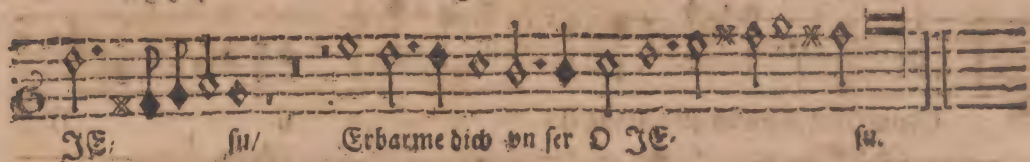 JE: ſu/ Erbarme dich vn ſer O JE- ſu.